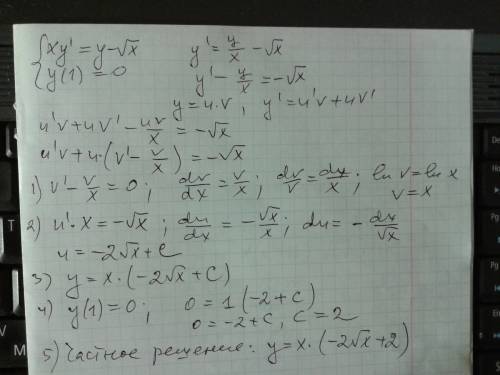 {xy' = y - √x    y' = y/x - √x
{y(1) = 0    y' - y/x = -√x
y = u·v, y' = u'v + uv'
u'v + uv' - uv/x = -√x
u'v + u·(v' - v/x) = -√x
1) v' - v/x = 0; dv/dx = v/x; dv/v = dx/x; ln v = ln x
v = x
2) u'·x = -√x; du/dx = -√x/x; du = -dx/√x
u = -2√x + c
3) y = x·(-2√x + C)
4) y(1) = 0; 0 = 1(-2 + C)
0 = -2 + C, C = 2
5) Частное решение: y = x·(-2√x + 2)